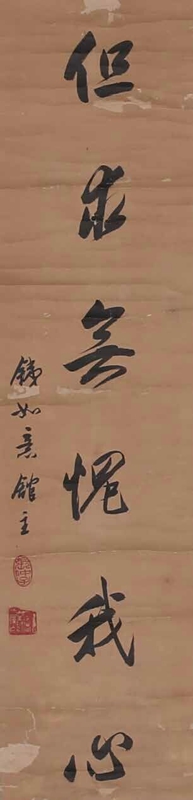 但求無愧我心
錢如意館主